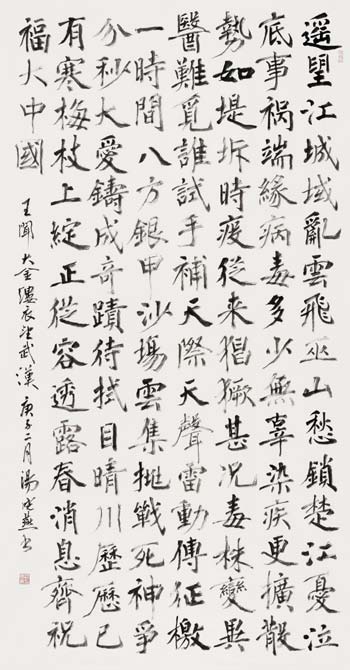 遥望江城域亂雲飛巫山愁鎖楚江憂泣
底事祸端緣病毒多少無辜染疾更擴散
勢如堤坼時疫從来猖獗甚况毒株變異
醫難覓誰試手補天際天聲雷動傳征檄
一時間八方銀甲沙場雲集挑戰死神爭
分秒大愛鑄成奇蹟待拭目晴川歷歷已
有寒梅枝上綻正從容透露春消息齊祝
福大中國
王闻大金縷衣望武漢 庚子二月湯